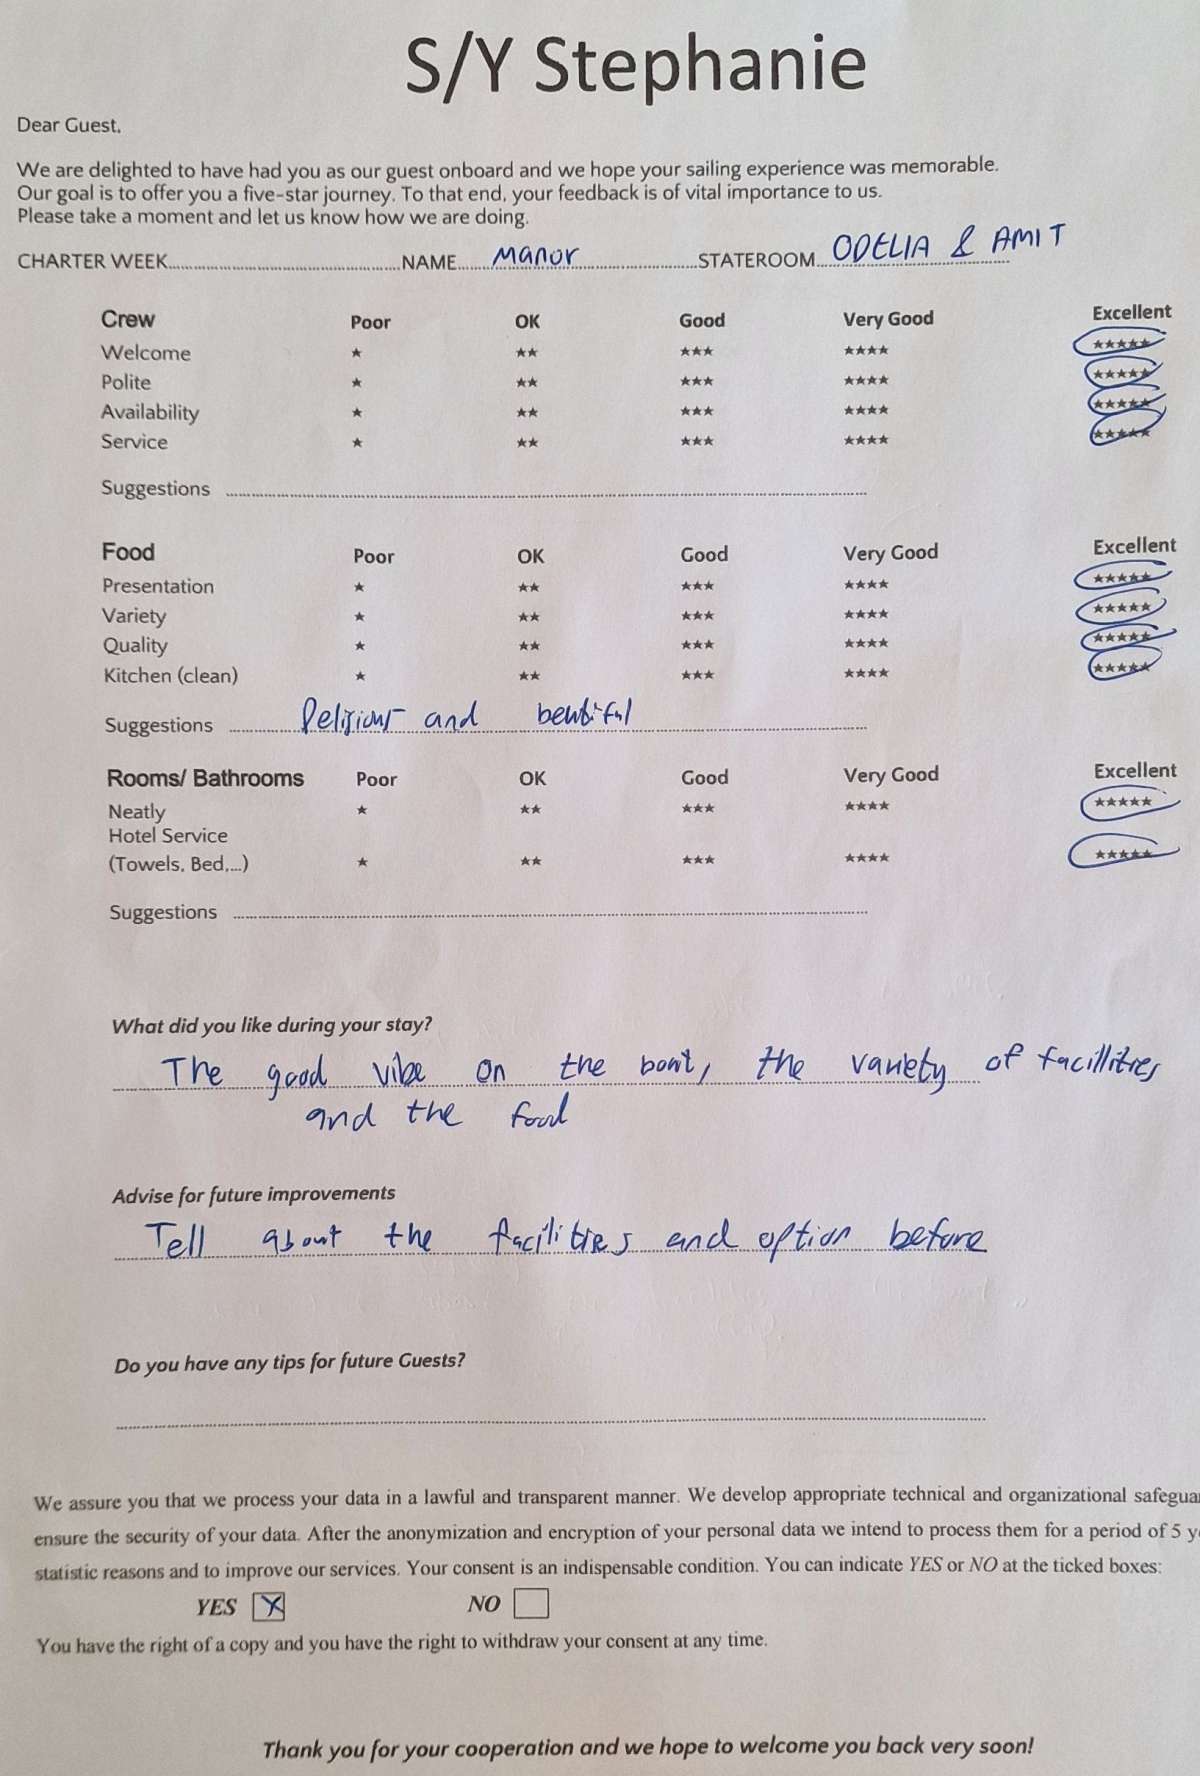 S/Y Stephanie
Dear Guest,
We are delighted to have had you as our guest onboard and we hope your sailing experience was memorable.
Our goal is to offer you a five-star journey. To that end, your feedback is of vital importance to us.
Please take a moment and let us know how we are doing.
CHARTER WEEK.................NAME......Manor.................STATEROOM...ODELIA & AMIT
Crew Poor OK Good Very Good Excellent
Welcome ★ ★★ ★★★ ★★★★ ★★★★★
Polite ★ ★★ ★★★ ★★★★ ★★★★★
Availability ★ ★★ ★★★ ★★★★ ★★★★★
Service ★ ★★ ★★★ ★★★★ ★★★★★
Suggestions
Food Poor OK Good Very Good Excellent
Presentation ★ ★★ ★★★ ★★★★ ★★★★★
Variety ★ ★★ ★★★ ★★★★ ★★★★★
Quality ★ ★★ ★★★ ★★★★ ★★★★★
Kitchen (clean) ★ ★★ ★★★ ★★★★ ★★★★★
Suggestions and
Rooms/ Bathrooms Poor OK Good Very Good Excellent
Neatly ★ ★★ ★★★ ★★★★ ★★★★★
Hotel Service
(Towels, Bed,...) ★ ★★ ★★★ ★★★★ ★★★★★
Suggestions
What did you like during your stay?
The good vibe on the boat, the variety of facillities
and the food
Advise for future improvements
Tell about the facilities and option before
Do you have any tips for future Guests?
We assure you that we process your data in a lawful and transparent manner. We develop appropriate technical and organizational safegua
ensure the security of your data. After the anonymization and encryption of your personal data we intend to process them for a period of 5 y
statistic reasons and to improve our services. Your consent is an indispensable condition. You can indicate YES or NO at the ticked boxes:
YES X NO
You have the right of a copy and you have the right to withdraw your consent at any time.
Thank you for your cooperation and we hope to welcome you back very soon!